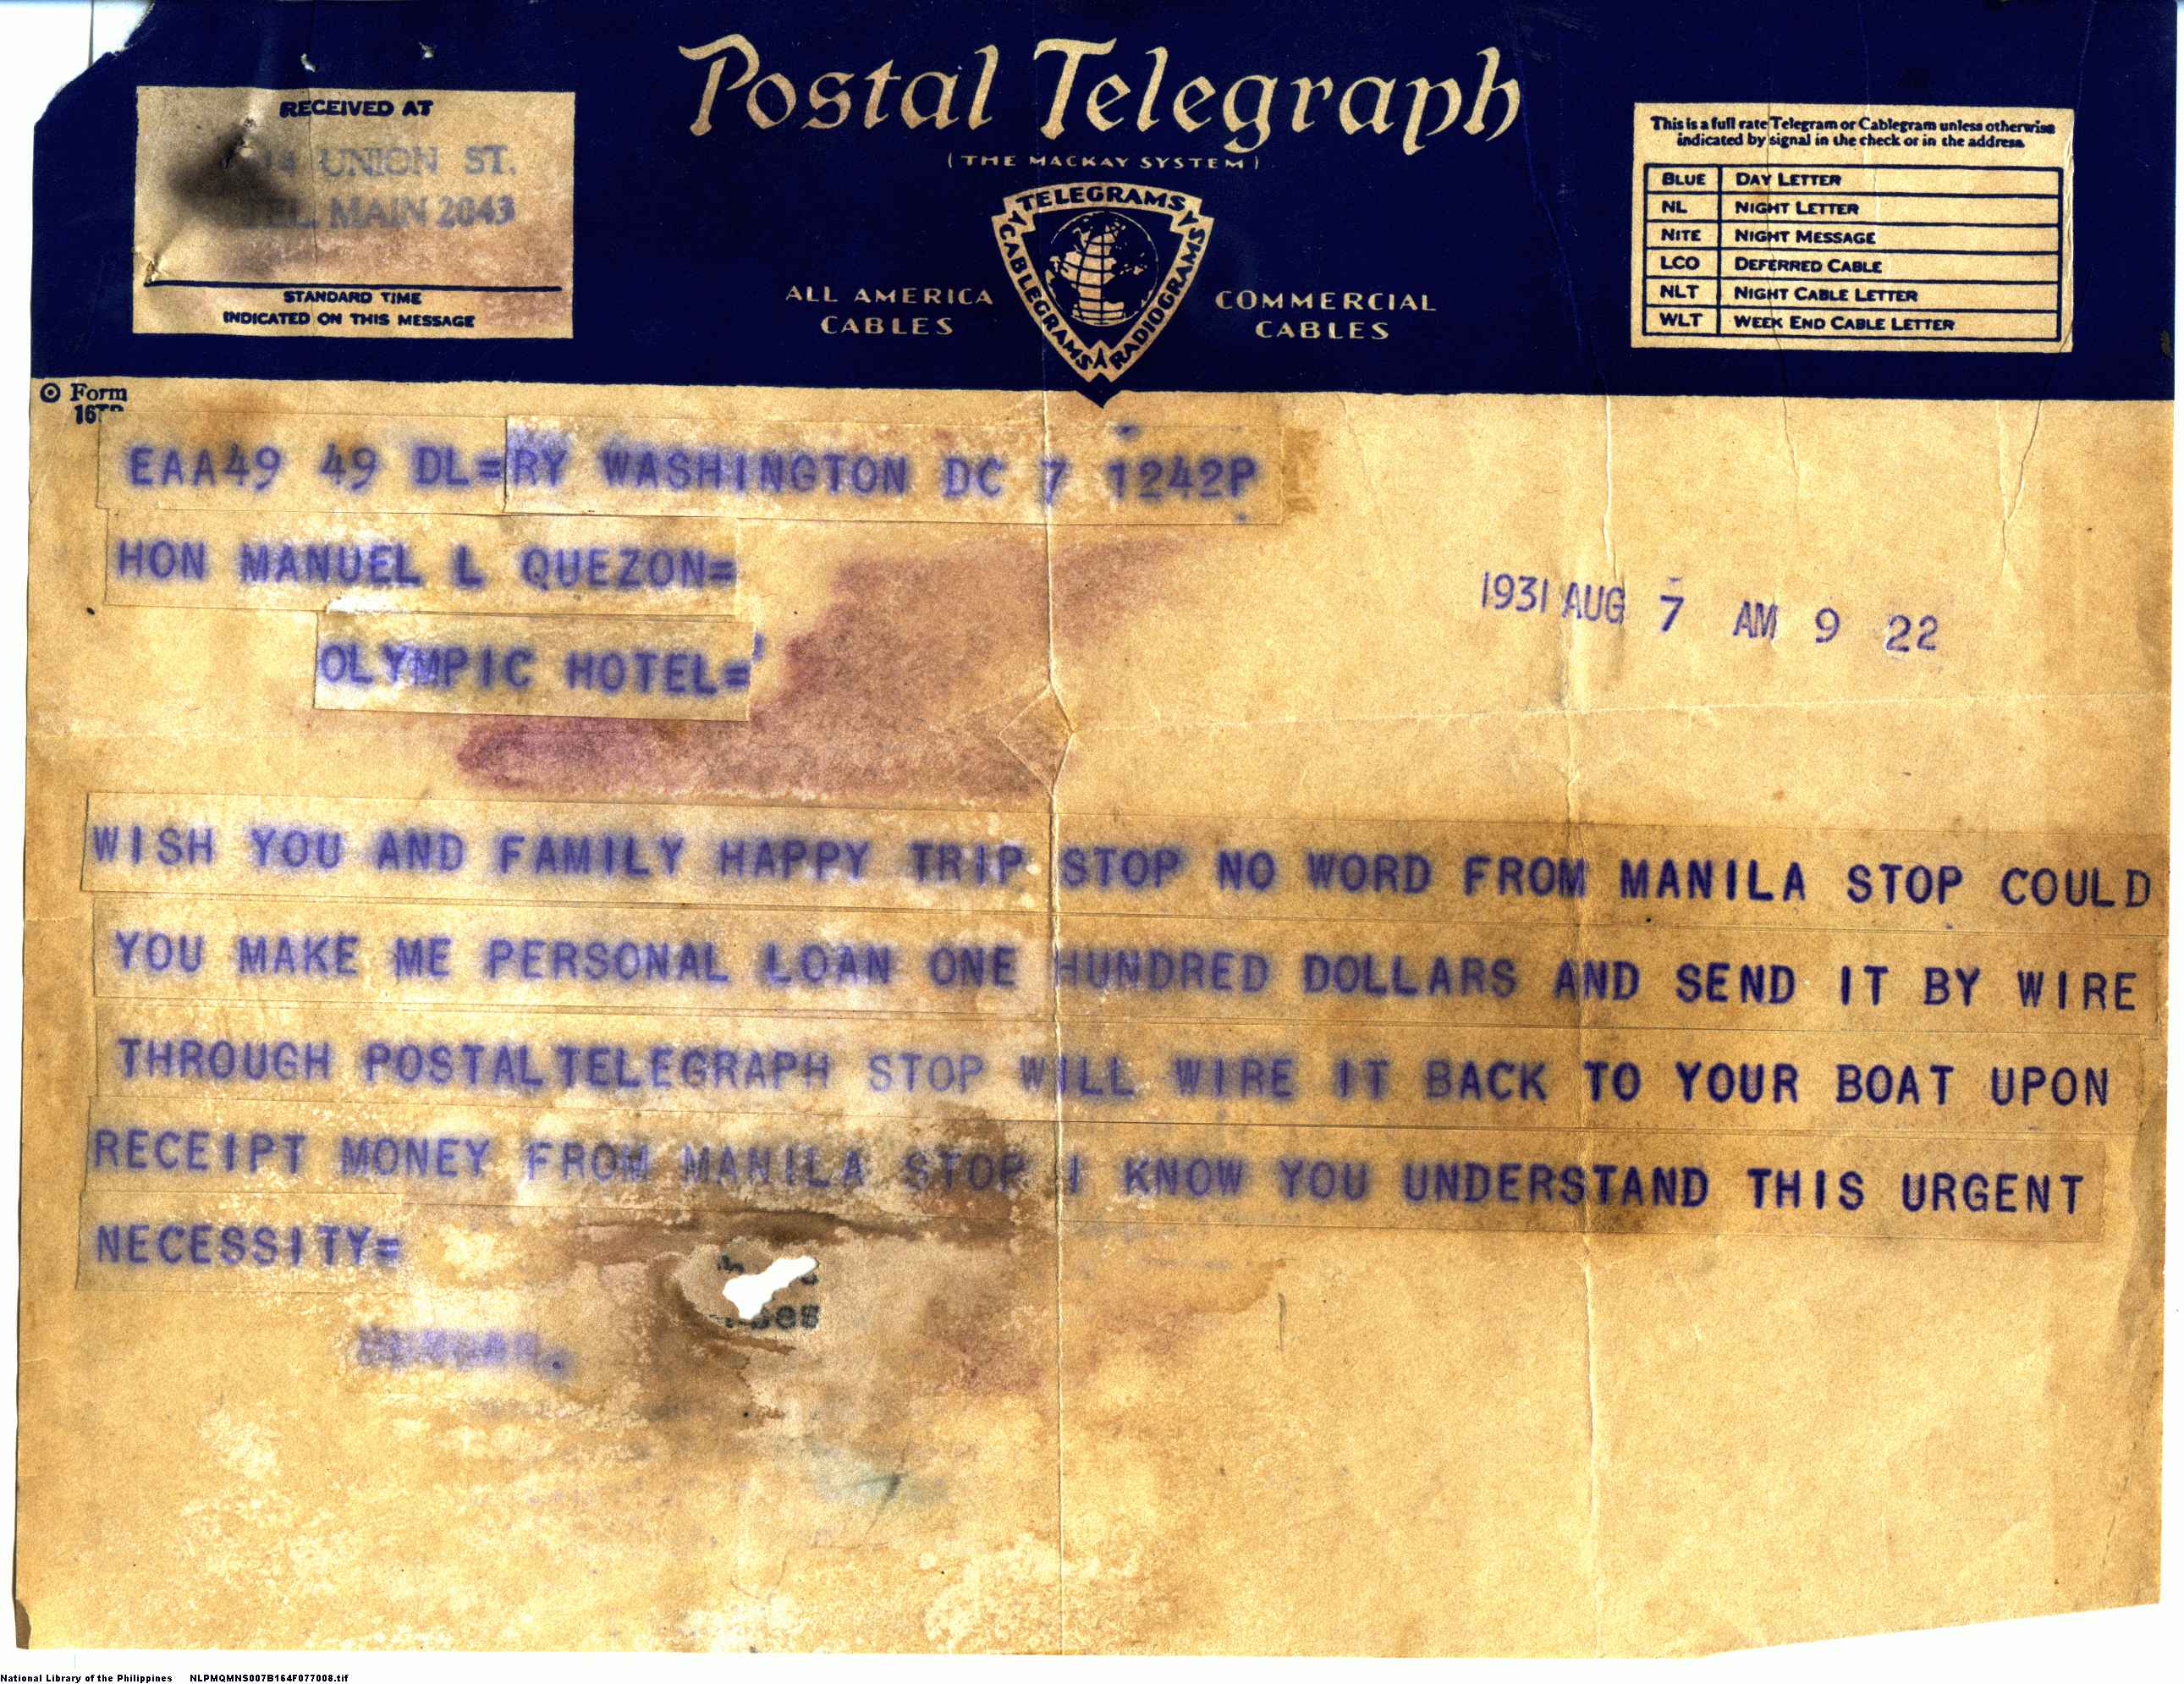 Postal Telegraph
(THE MACKAY SYSTEM)
RECEIVED AT
UNION ST.
TEL. MAIN 2043
STANDARD TIME
INDICATED ON THIS MESSAGE
ALL AMERICA
CABLES
TELEGRAMS
CABLEGRAMS
RADIOGRAMS
COMMERCIAL
CABLES
This is a full rate Telegram or Cablegram unless otherwise
indicated by signal in the check or in the address.
BLUE DAY LETTER
NL NIGHT LETTER
NITE NIGHT MESSAGE
LCO DEFERRED CABLE
NLT NIGHT CABLE LETTER
WLT WEEK END CABLE LETTER
Form
EAA49 49 DL=RY WASHINGTON DC 7 1242P
HON MANUEL L QUEZON=
1931 AUG 7 AM 9 22
OLYMPIC HOTEL=
WISH YOU AND FAMILY HAPPY TRIP STOP NO WORD FROM MANILA STOP COULD
YOU MAKE ME PERSONAL LOAN ONE HUNDRED DOLLARS AND SEND IT BY WIRE
THROUGH POSTALTELEGRAPH STOP WILL WIRE IT BACK TO YOUR BOAT UPON
RECEIPT MONEY FROM MANILA STOP I KNOW YOU UNDERSTAND THIS URGENT
NECESSITY=
National Library of the Philippines NLPMQMNS007B164F077008.tif